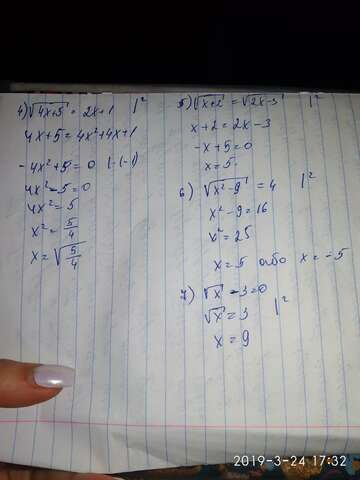 4) √4x+5 = 2x+1 |²
4x+5 = 4x²+4x+1
-4x²+5 = 0 |·(-1)
4x²-5 = 0
4x² = 5
x² = 5/4
x = √5/4
5) √x+2 = √2x-3 |²
x+2 = 2x-3
-x+5 = 0
x = 5
6) √x²-9 = 4 |²
x²-9 = 16
x² = 25
x = 5 або x = -5
7) √x -3 = 0
√x = 3 |²
x = 9
2019-3-24 17:32